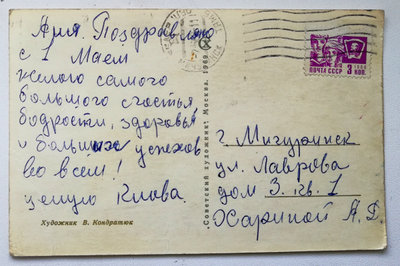 Аня. Поздравляю
с 1 Маем
желаю самого
большого счастья
бодрости, здоровья
и больших успехов
во всём!
целую Клава.
Художник В. Кондратюк
„Советский художник". Москва. 1969
ПОЧТА СССР 3 КОП.
1966
г. Мичуринск
ул. Лаврова
дом 3. кв. 1
Хариной А. Д.